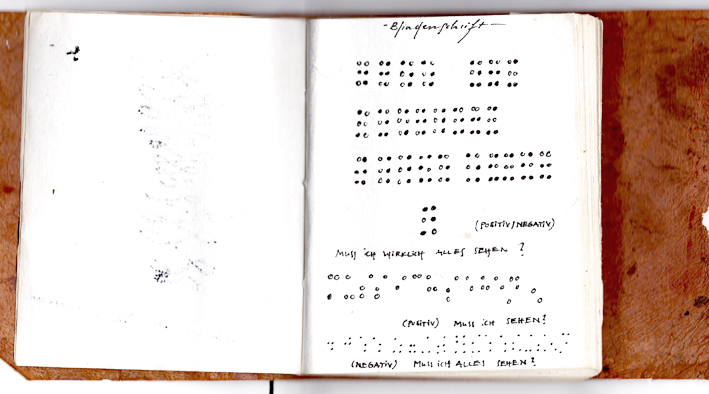 -Blindenschrift-
(POSITIV/NEGATIV)
MUSS ICH WIRKLICH ALLES SEHEN?
(POSITIV) MUSS ICH SEHEN?
(NEGATIV) MUSS ICH ALLES SEHEN?